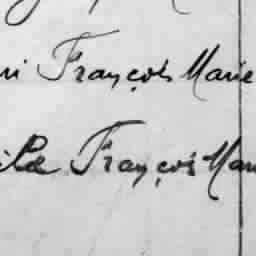 ri François Marie
François Mar